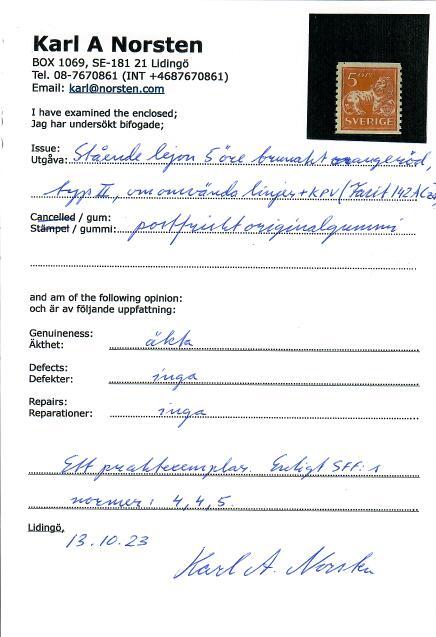 Karl A Norsten
BOX 1069, SE-181 21 Lidingö
Tel. 08-7670861 (INT +4687670861)
Email: karl@norsten.com
5 ÖRE
SVERIGE
I have examined the enclosed;
Jag har undersökt bifogade;
Issue:
Utgåva: Stående lejon 5 öre brunakt orangeröd,
typ II, vm omvända linjer + KPV (Facit 142A
Cancelled / gum:
Stämpel / gummi: postfriskt originalgummi
and am of the following opinion:
och är av följande uppfattning:
Genuineness:
Äkthet: äkta
Defects:
Defekter: inga
Repairs:
Reparationer: inga
Ett praktexemplar. Enligt SFF:s
normer: 4,4,5.
Lidingö,
13.10.23
Karl A. Norsten